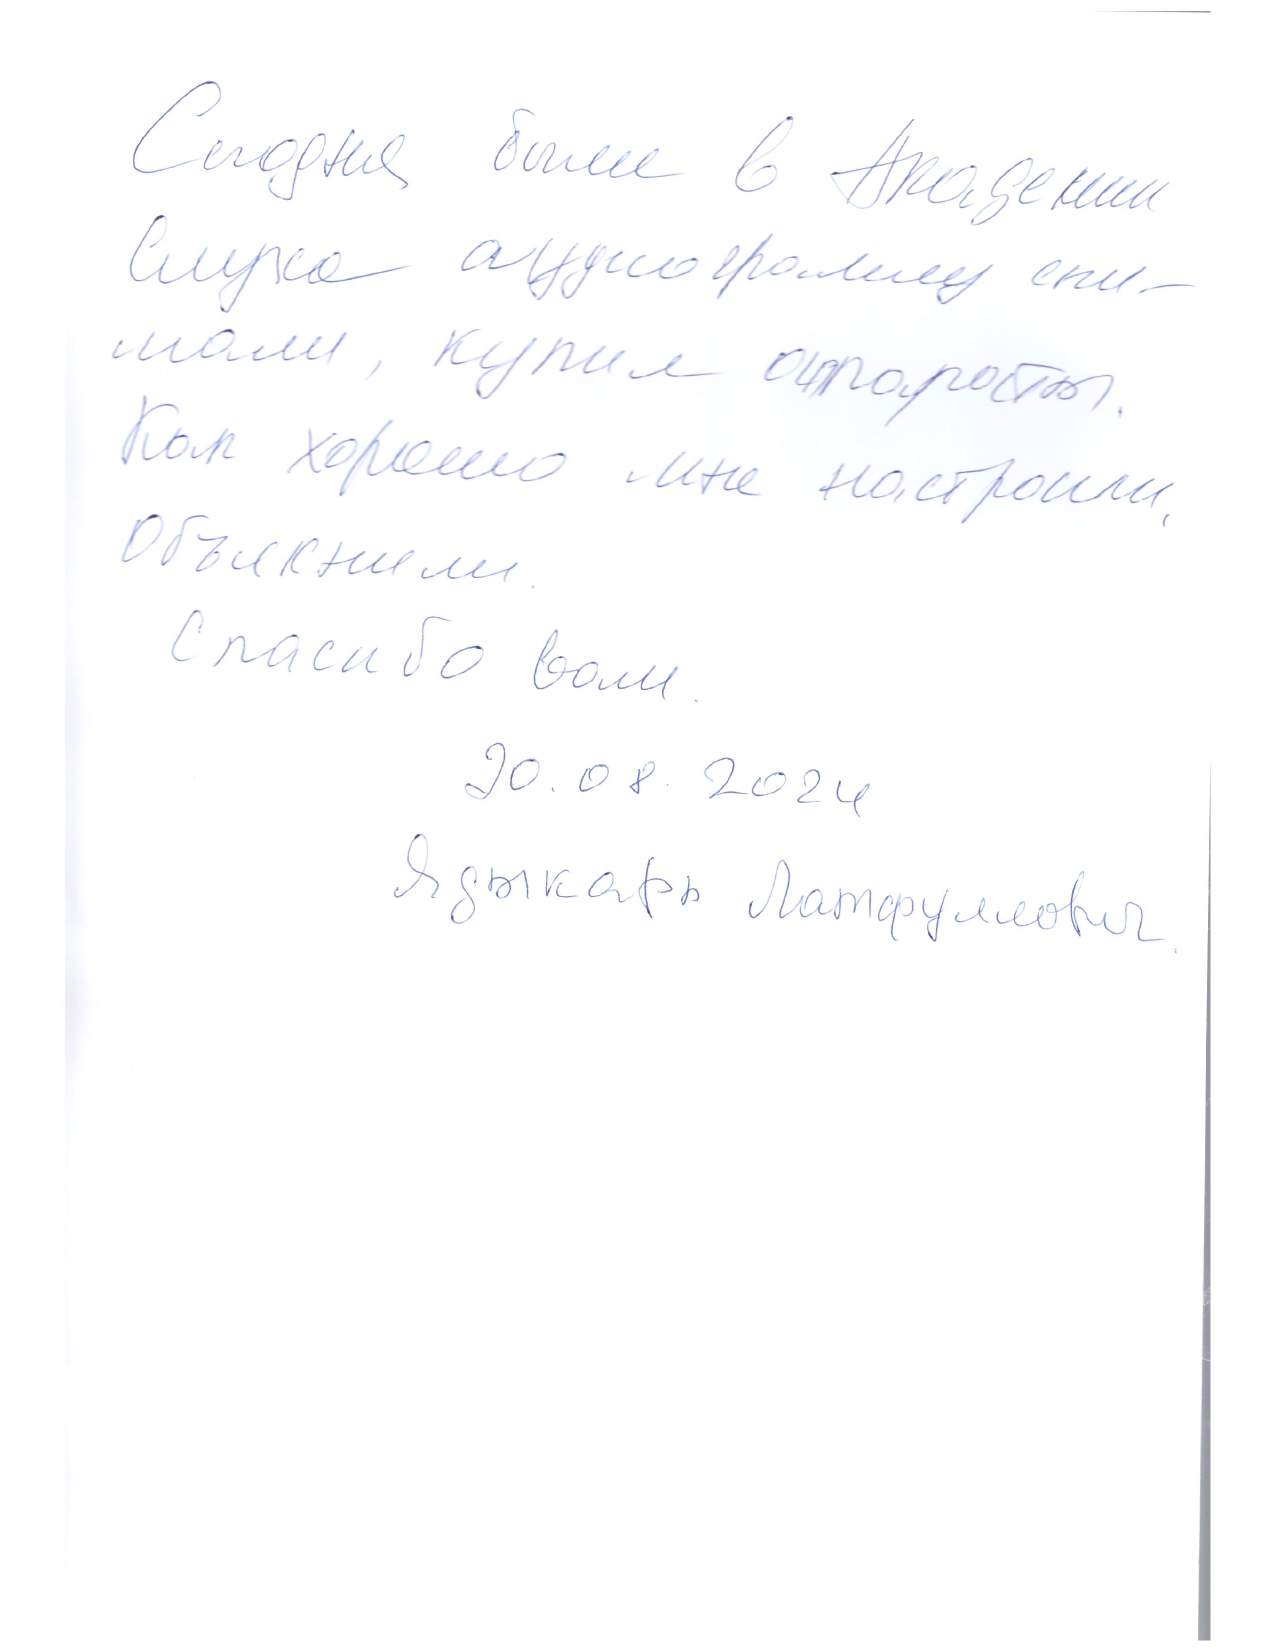 Сегодня были в Академии
Слуха аудиограмму сни-
мали, купил аппараты.
Как хорошо мне настроили,
Объяснили.
Спасибо вам.
20.08.2024
Ядыкарь Латфуллович.